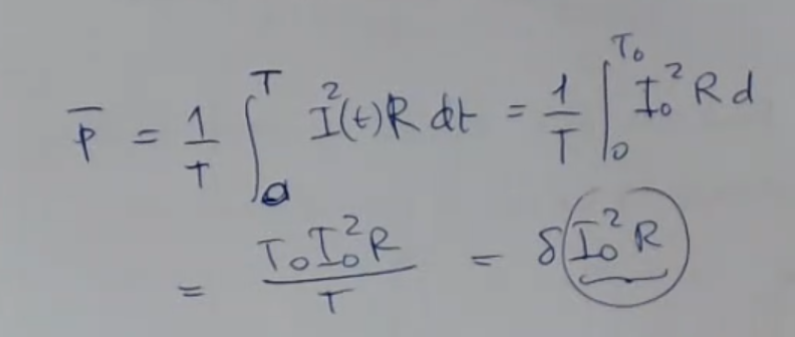 P̅ = 1/T ∫₀ᵀ I²(t)R dt = 1/T ∫₀ᵀ⁰ I₀² R d
= T₀I₀²R/T = δ I₀²R